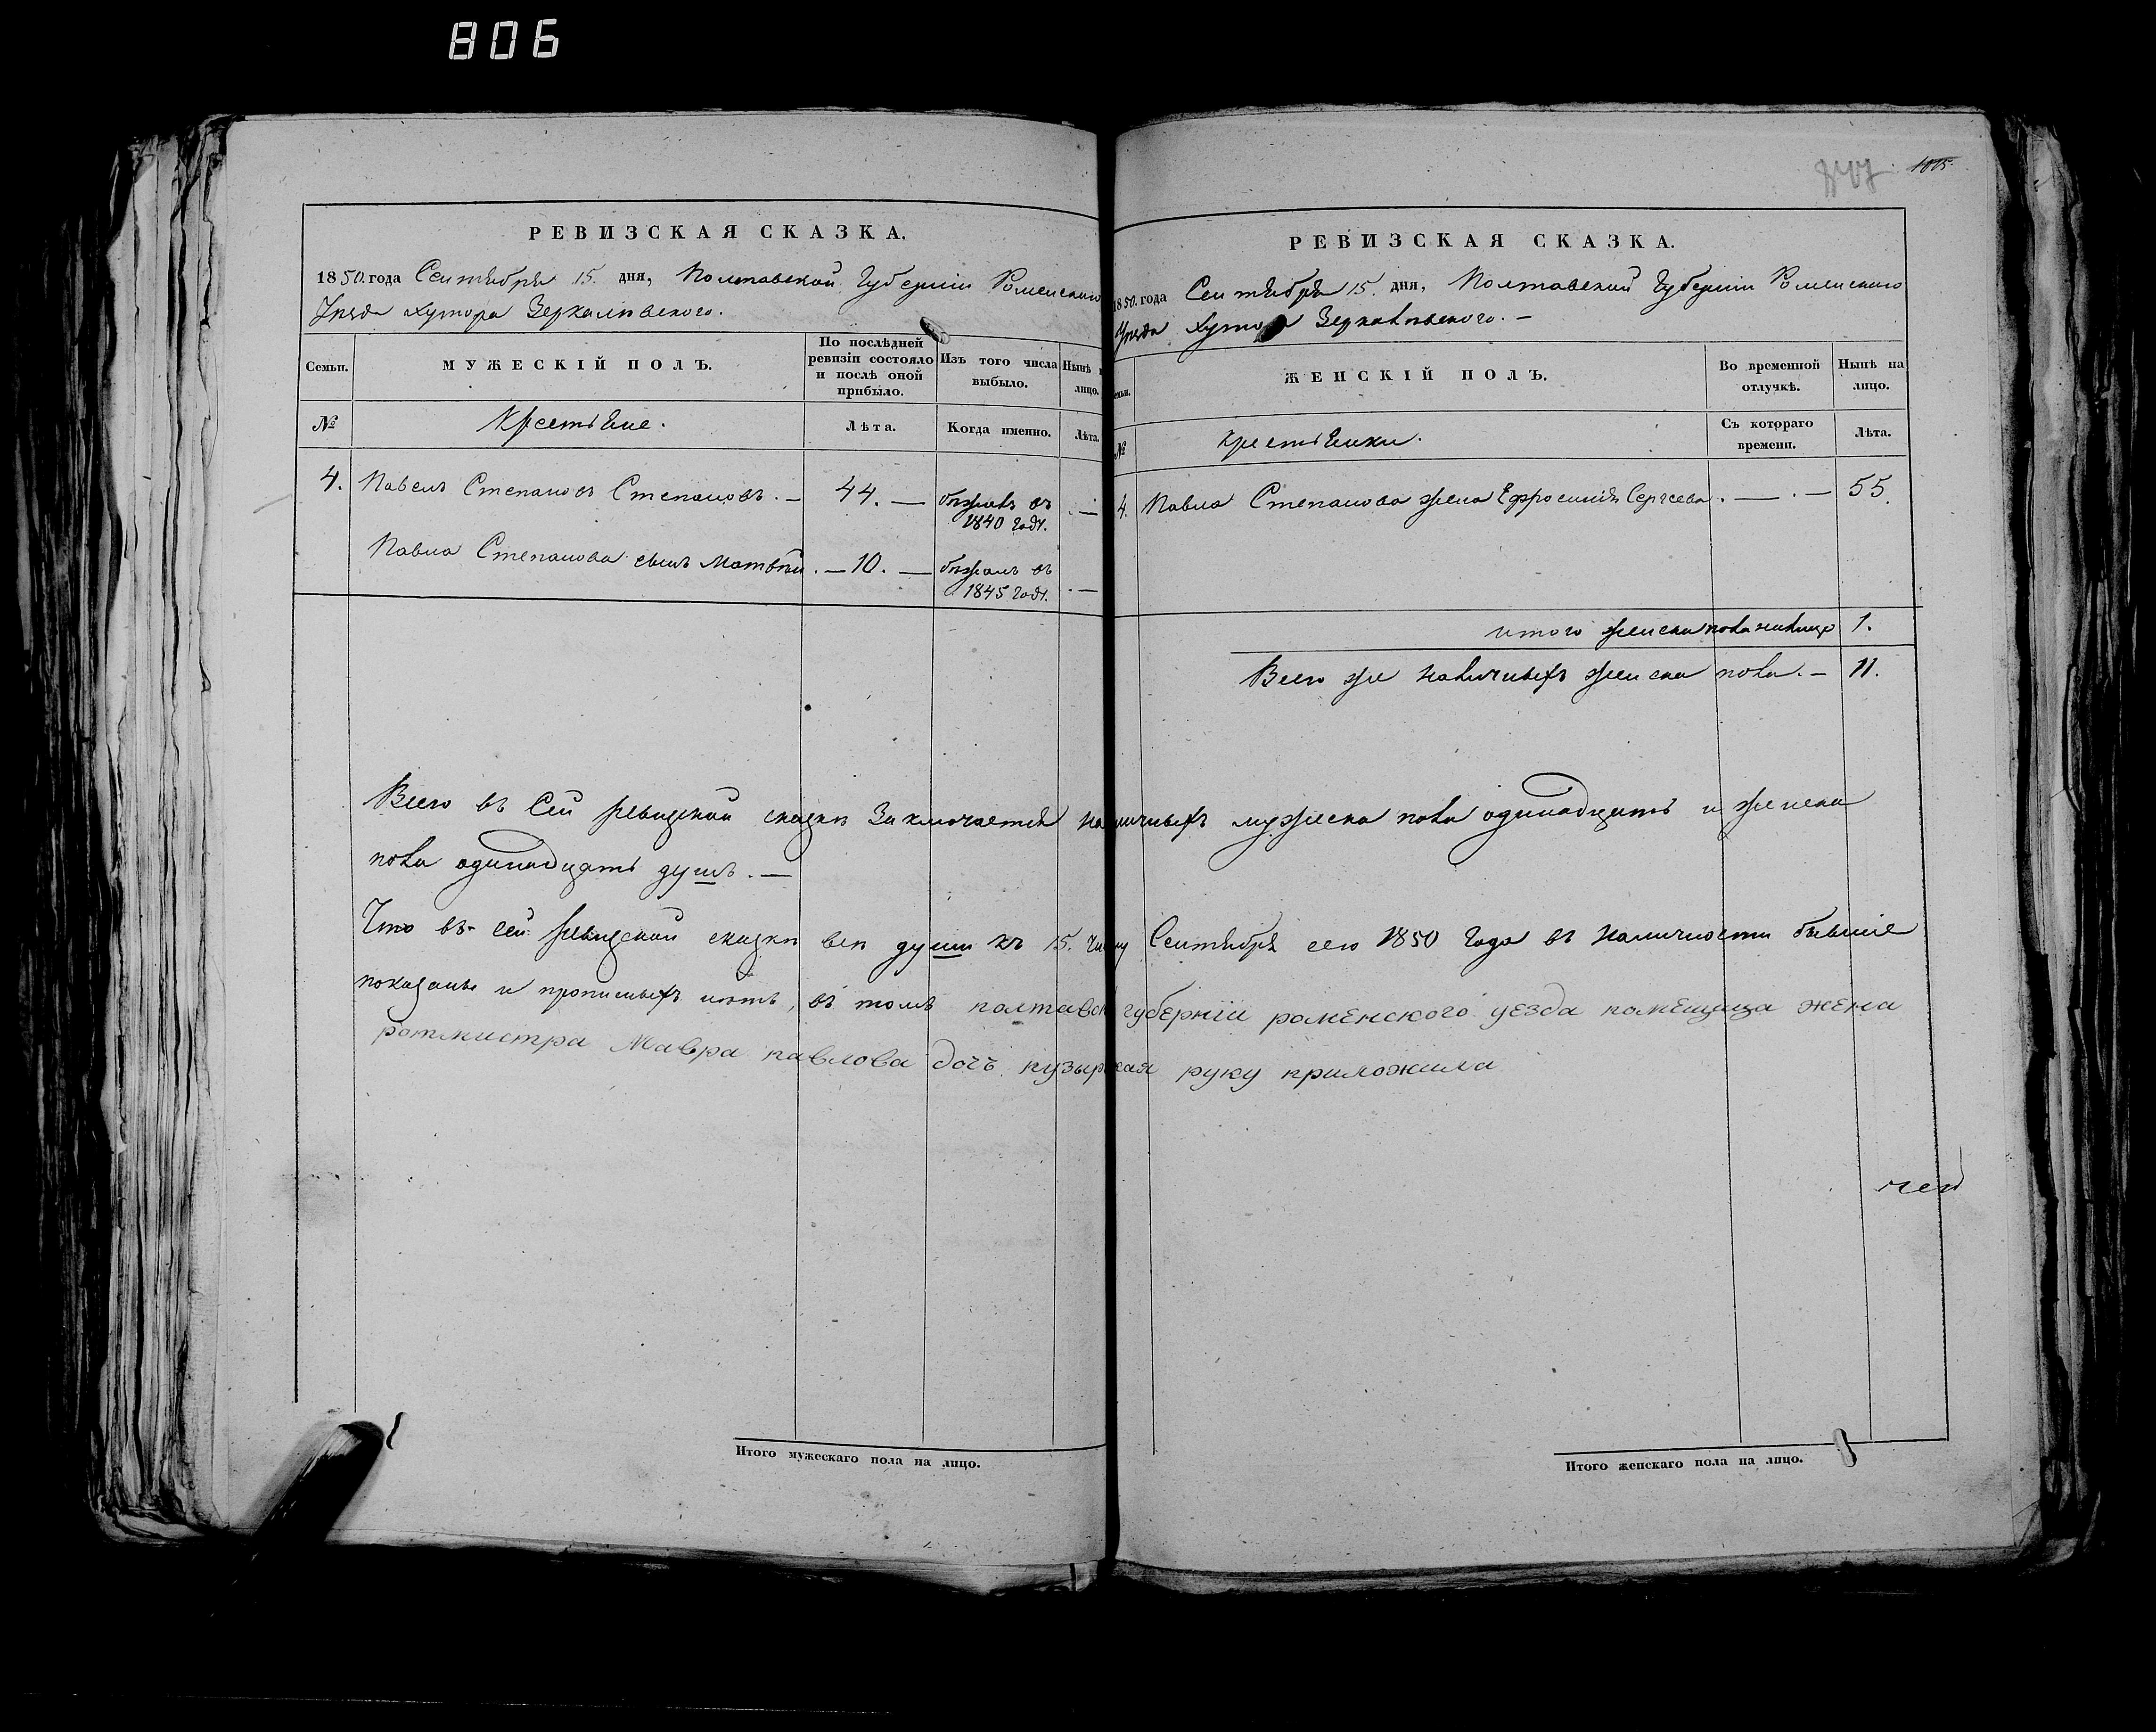 806
1815.
РЕВИЗСКАЯ СКАЗКА.
1850. года Сентября 15. дня, Полтавской Губернiи Роменского
Уезда хутора Зеркалевского.
Семьи.
МУЖЕСКIЙ ПОЛЪ.
По послѣдней ревизiи состояло и послѣ оной прибыло.
Изъ того числа выбыло.
Нынѣ лицо.
№
Крестьяне.
Лѣта.
Когда именно.
Лѣта.
4. Павелъ Степановъ Степановъ. — 44. — бѣжалъ въ 1840 годѣ. . —
Павла Степанова сынъ Матвѣй . — 10. — бѣжалъ въ 1845 годѣ. . —
РЕВИЗСКАЯ СКАЗКА.
1850. года Сентября 15. дня, Полтавской Губернiи Роменского
Уезда хутора Зеркалевского. —
ЖЕНСКIЙ ПОЛЪ.
Во временной отлучкѣ.
Нынѣ на лицо.
№
Крестьянки.
Съ котораго времени.
Лѣта.
4. Павла Степанова жена Ефросинiя Сергѣева . — . — 55.
итого женска пола налицо 1.
Всего же наличныхъ женска пола. — 11.
Всего въ Сей ревизской сказкѣ Заключается наличныхъ мужеска пола одинадцать и женска
пола одинадцать душъ. —
Что въ сей ревизской сказкѣ всѣ души къ 15. числу Сентября сего 1850 года въ наличности бывшiе
показаны и прописныхъ нѣтъ, въ томъ полтавск губернiи роменского уезда помещица жена
ротмистра Мавра павлова дочъ пузырская руку приложила
Итого мужескаго пола на лицо.
Итого женскаго пола на лицо.